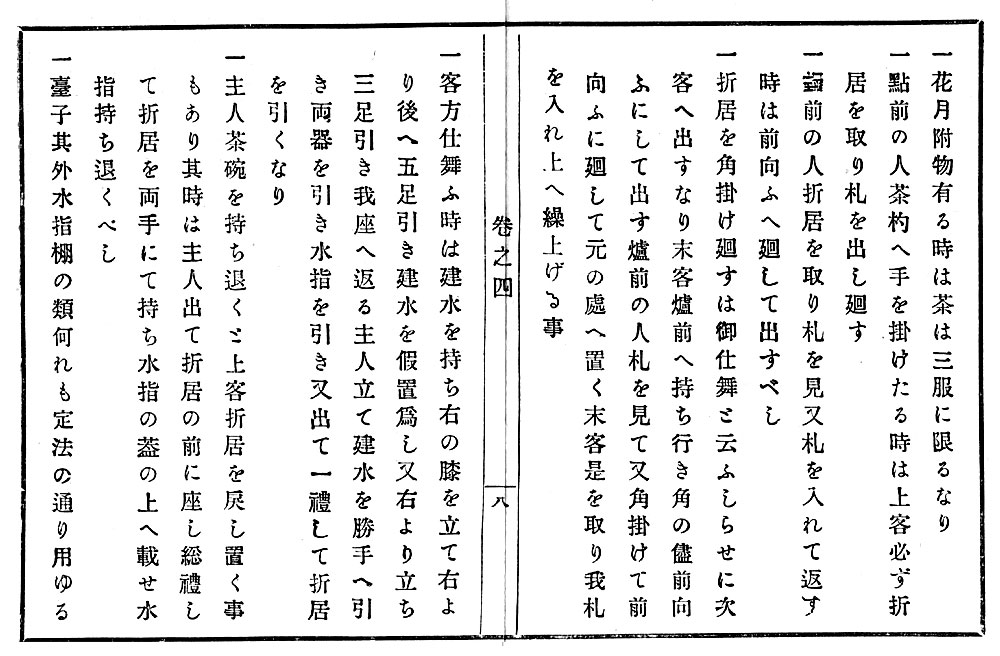 一花月附物有る時は茶は三服に限るなり
一點前の人茶杓へ手を掛けたる時は上客必ず折
居を取り札を出し廻す
一爐前の人折居を取り札を見又札を入れて返す
時は前向ふへ廻して出すべし
一折居を角掛け廻すは御仕舞と云ふしらせに次
客へ出すなり末客爐前へ持ち行き角の儘前向
ふにして出す爐前の人札を見て又角掛けて前
向ふに廻して元の處へ置く末客是を取り我札
を入れ上へ繰上げる事
卷之四
八
一客方仕舞ふ時は建水を持ち右の膝を立て右よ
り後へ五足引き建水を假置爲し又右より立ち
三足引き我座へ返る主人立て建水を勝手へ引
き両器を引き水指を引き又出て一禮して折居
を引くなり
一主人茶碗を持ち退くと上客折居を戻し置く事
もあり其時は主人出て折居の前に座し総禮し
て折居を両手にて持ち水指の蓋の上へ載せ水
指持ち退くべし
一臺子其外水指棚の類何れも定法の通り用ゆる